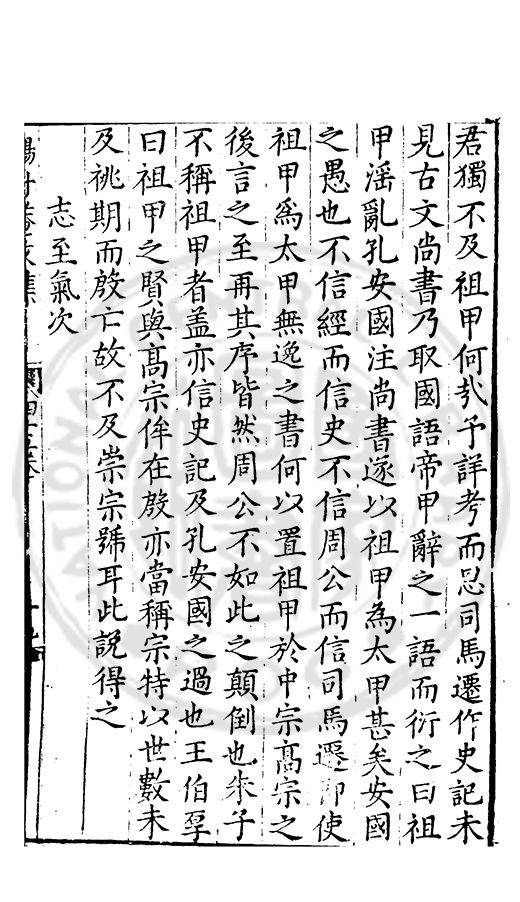 君獨不及祖甲何㢤予詳考而思司馬遷作史記未
見古文尚書乃取國語帝甲辭之一語而衍之曰祖
甲滛亂孔安國注尚書遂以祖甲為太甲甚矣安國
之愚也不信經而信史不信周公而信司馬遷即使
祖甲爲太甲無逸之書何以置祖甲於中宗髙宗之
後言之至再其序皆然周公不如此之顛倒也朱子
不稱祖甲者盖亦信史記及孔安國之過也王伯厚
曰祖甲之賢與髙宗侔在殷亦當稱宗特以世數未
及祧期而殷亡故不及崇宗號耳此說得之
志至氣次